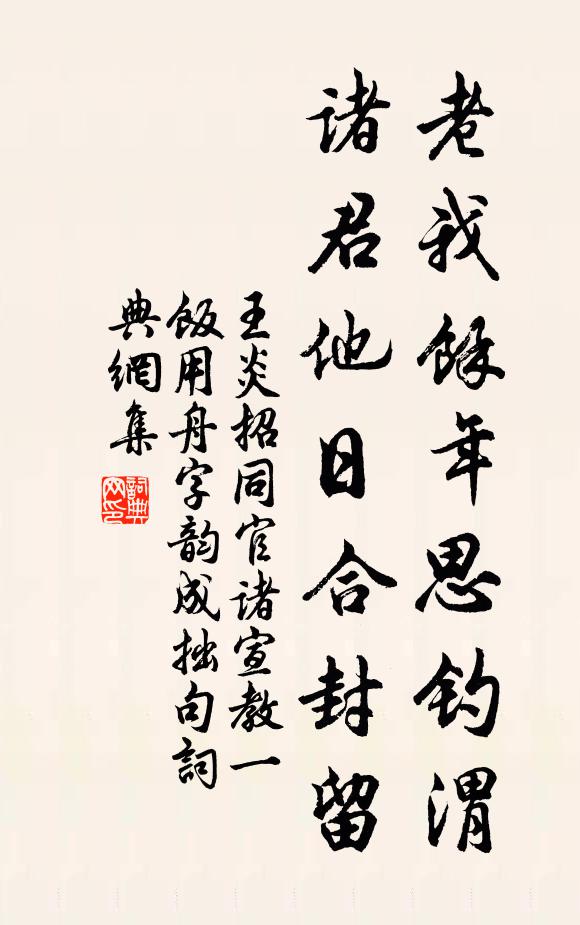 老我餘年思钓渭
诸君他日合封留
王炎招同官诸宣教一
饭用舟字韵成拙句詞
典網集
詞典
网印